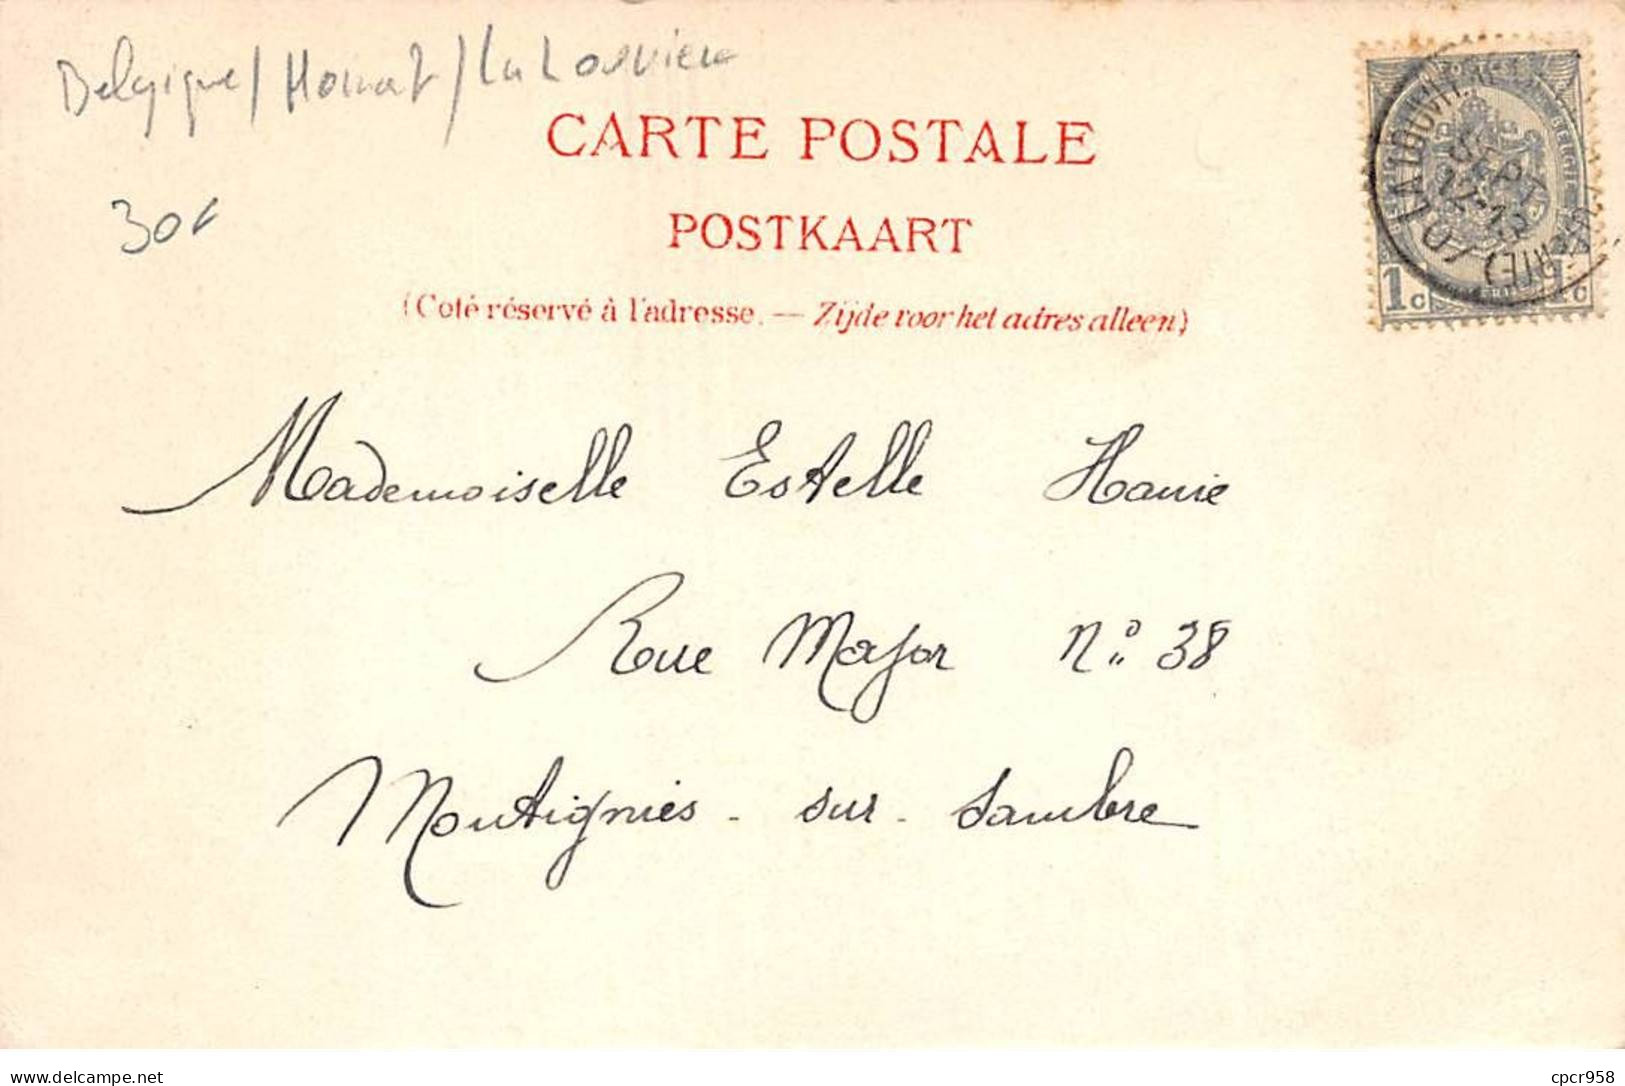 Belgique / Hainat / La Louviere
CARTE POSTALE
30€
POSTKAART
(Coté réservé à l'adresse. — Zijde voor het adres alleen)
LA LOUVIÈRE
SEPT
12-13
07
BELGIE
1c
Mademoiselle Estelle Hanie
Rue Major N° 38
Montignies-sur-Sambre
delcampe.net
cpcr958